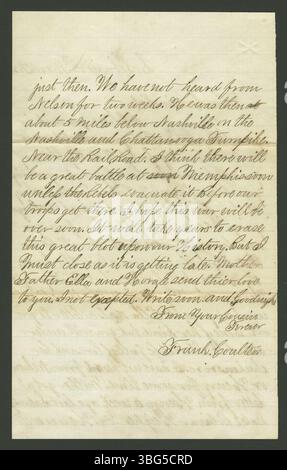 just then. We have not heard from
Nelson for two weeks. He was then at
about 5 miles below Nashville on the
Nashville and Chattanooga Turnpike.
Near the Railroad. I think there will
be a great battle at Memphis soon
unless the rebels evacuate it before our
troops get there. I hope this war will be
over soon. It will take years to erase
this great blot upon our History. But I
Must close as it is getting late. Mother
Father Ella and Horace send thier love
to you. I not excepted. Write soon and Goodnight
From Your Cousin
Frank. Coulter
alamy
Image ID: 3BG5CRD
www.alamy.com